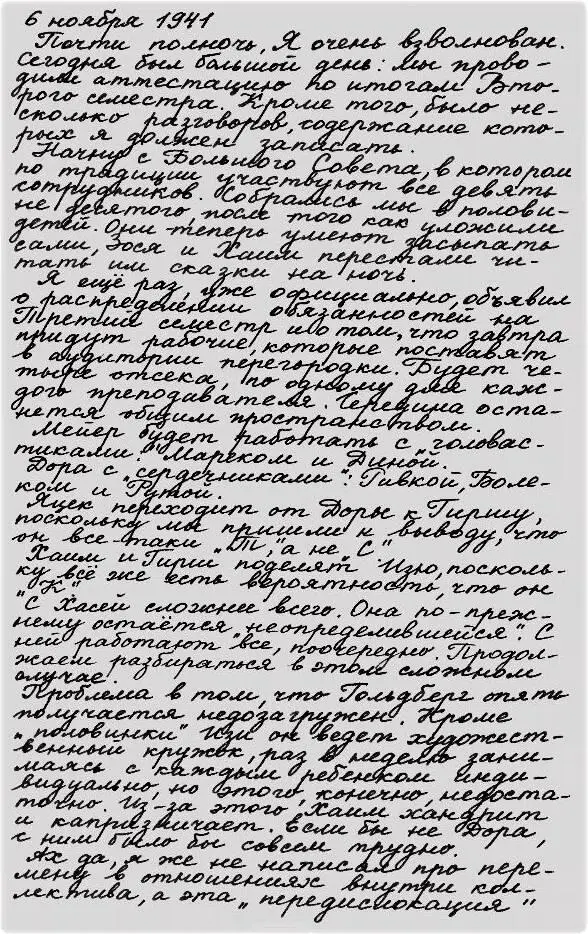 6 ноября 1941
Почти полночь, Я очень взволнован.
Сегодня был большой день: мы прово-
дили аттестацию по итогам Вто-
рого семестра. Кроме того, было не-
сколько разговоров, содержание кото-
рых я должен записать.
Начну с Большого Совета, в котором
по традиции участвуют все девять
сотрудников. Собрались мы в полови-
не десятого, после того как уложили
детей. Они теперь умеют засыпать
сами, Зося и Хаим перестали чи-
тать им сказки на ночь.
Я ещё раз, уже официально, объявил
о распределении обязанностей на
Третий семестр и о том, что завтра
придут рабочие, которые поставят
в аудитории перегородки. Будет че-
тыре отсека, по одному для каж-
дого преподавателя. Середина оста-
нется общим пространством.
Мейер будет работать с „головас-
тиками“: Мареком и Диной.
Дора с „сердечниками“: Ривкой, Боле-
ком и Рутой.
Яцек переходит от Доры к Гиршу,
поскольку мы пришли к выводу, что
он все-таки „Т“, а не „С“
Хаим и Гирш поделят Изю, посколь-
ку всё же есть вероятность, что он
„К“
С Хасей сложнее всего. Она по-преж-
нему остаётся „неопределившейся“. С
ней работают все, поочередно. Продол-
жаем разбираться в этом сложном
случае.
Проблема в том, что Гольдберг опять
получается недозагружен. Кроме
„половинки“ Изи он ведет художест-
венный кружок, раз в неделю зани-
маясь с каждым ребенком инди-
видуально, но этого, конечно, недоста-
точно. Из-за этого Хаим хандрит
и капризничает. Если бы не Дора,
с ним было бы совсем трудно.
Ах да, я же не написал про пере-
мену в отношениях внутри кол-
лектива, а эта „передислокация“